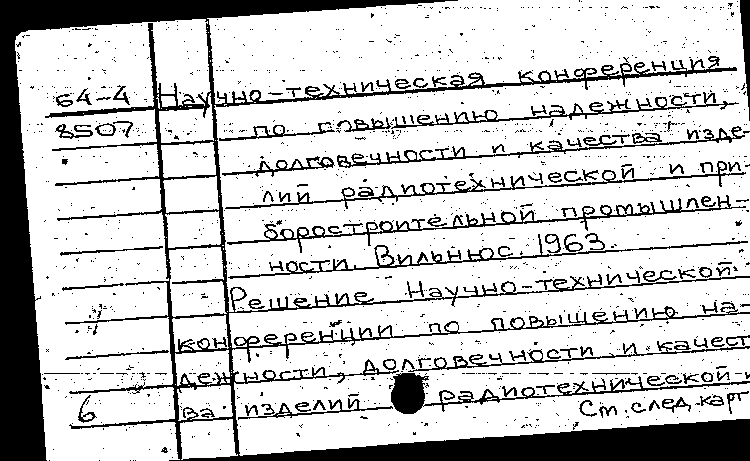 64-4 Научно-техническая конференция
8507 по повышению надежности,
долговечности и качества изде-
лий радиотехнической и при-
боростроительной промышлен-
ности. Вильнюс. 1963.
Решение Научно-технической
конференции по повышению на-
дежности, долговечности и качест
6 ва изделий радиотехнической и
См. след. карт